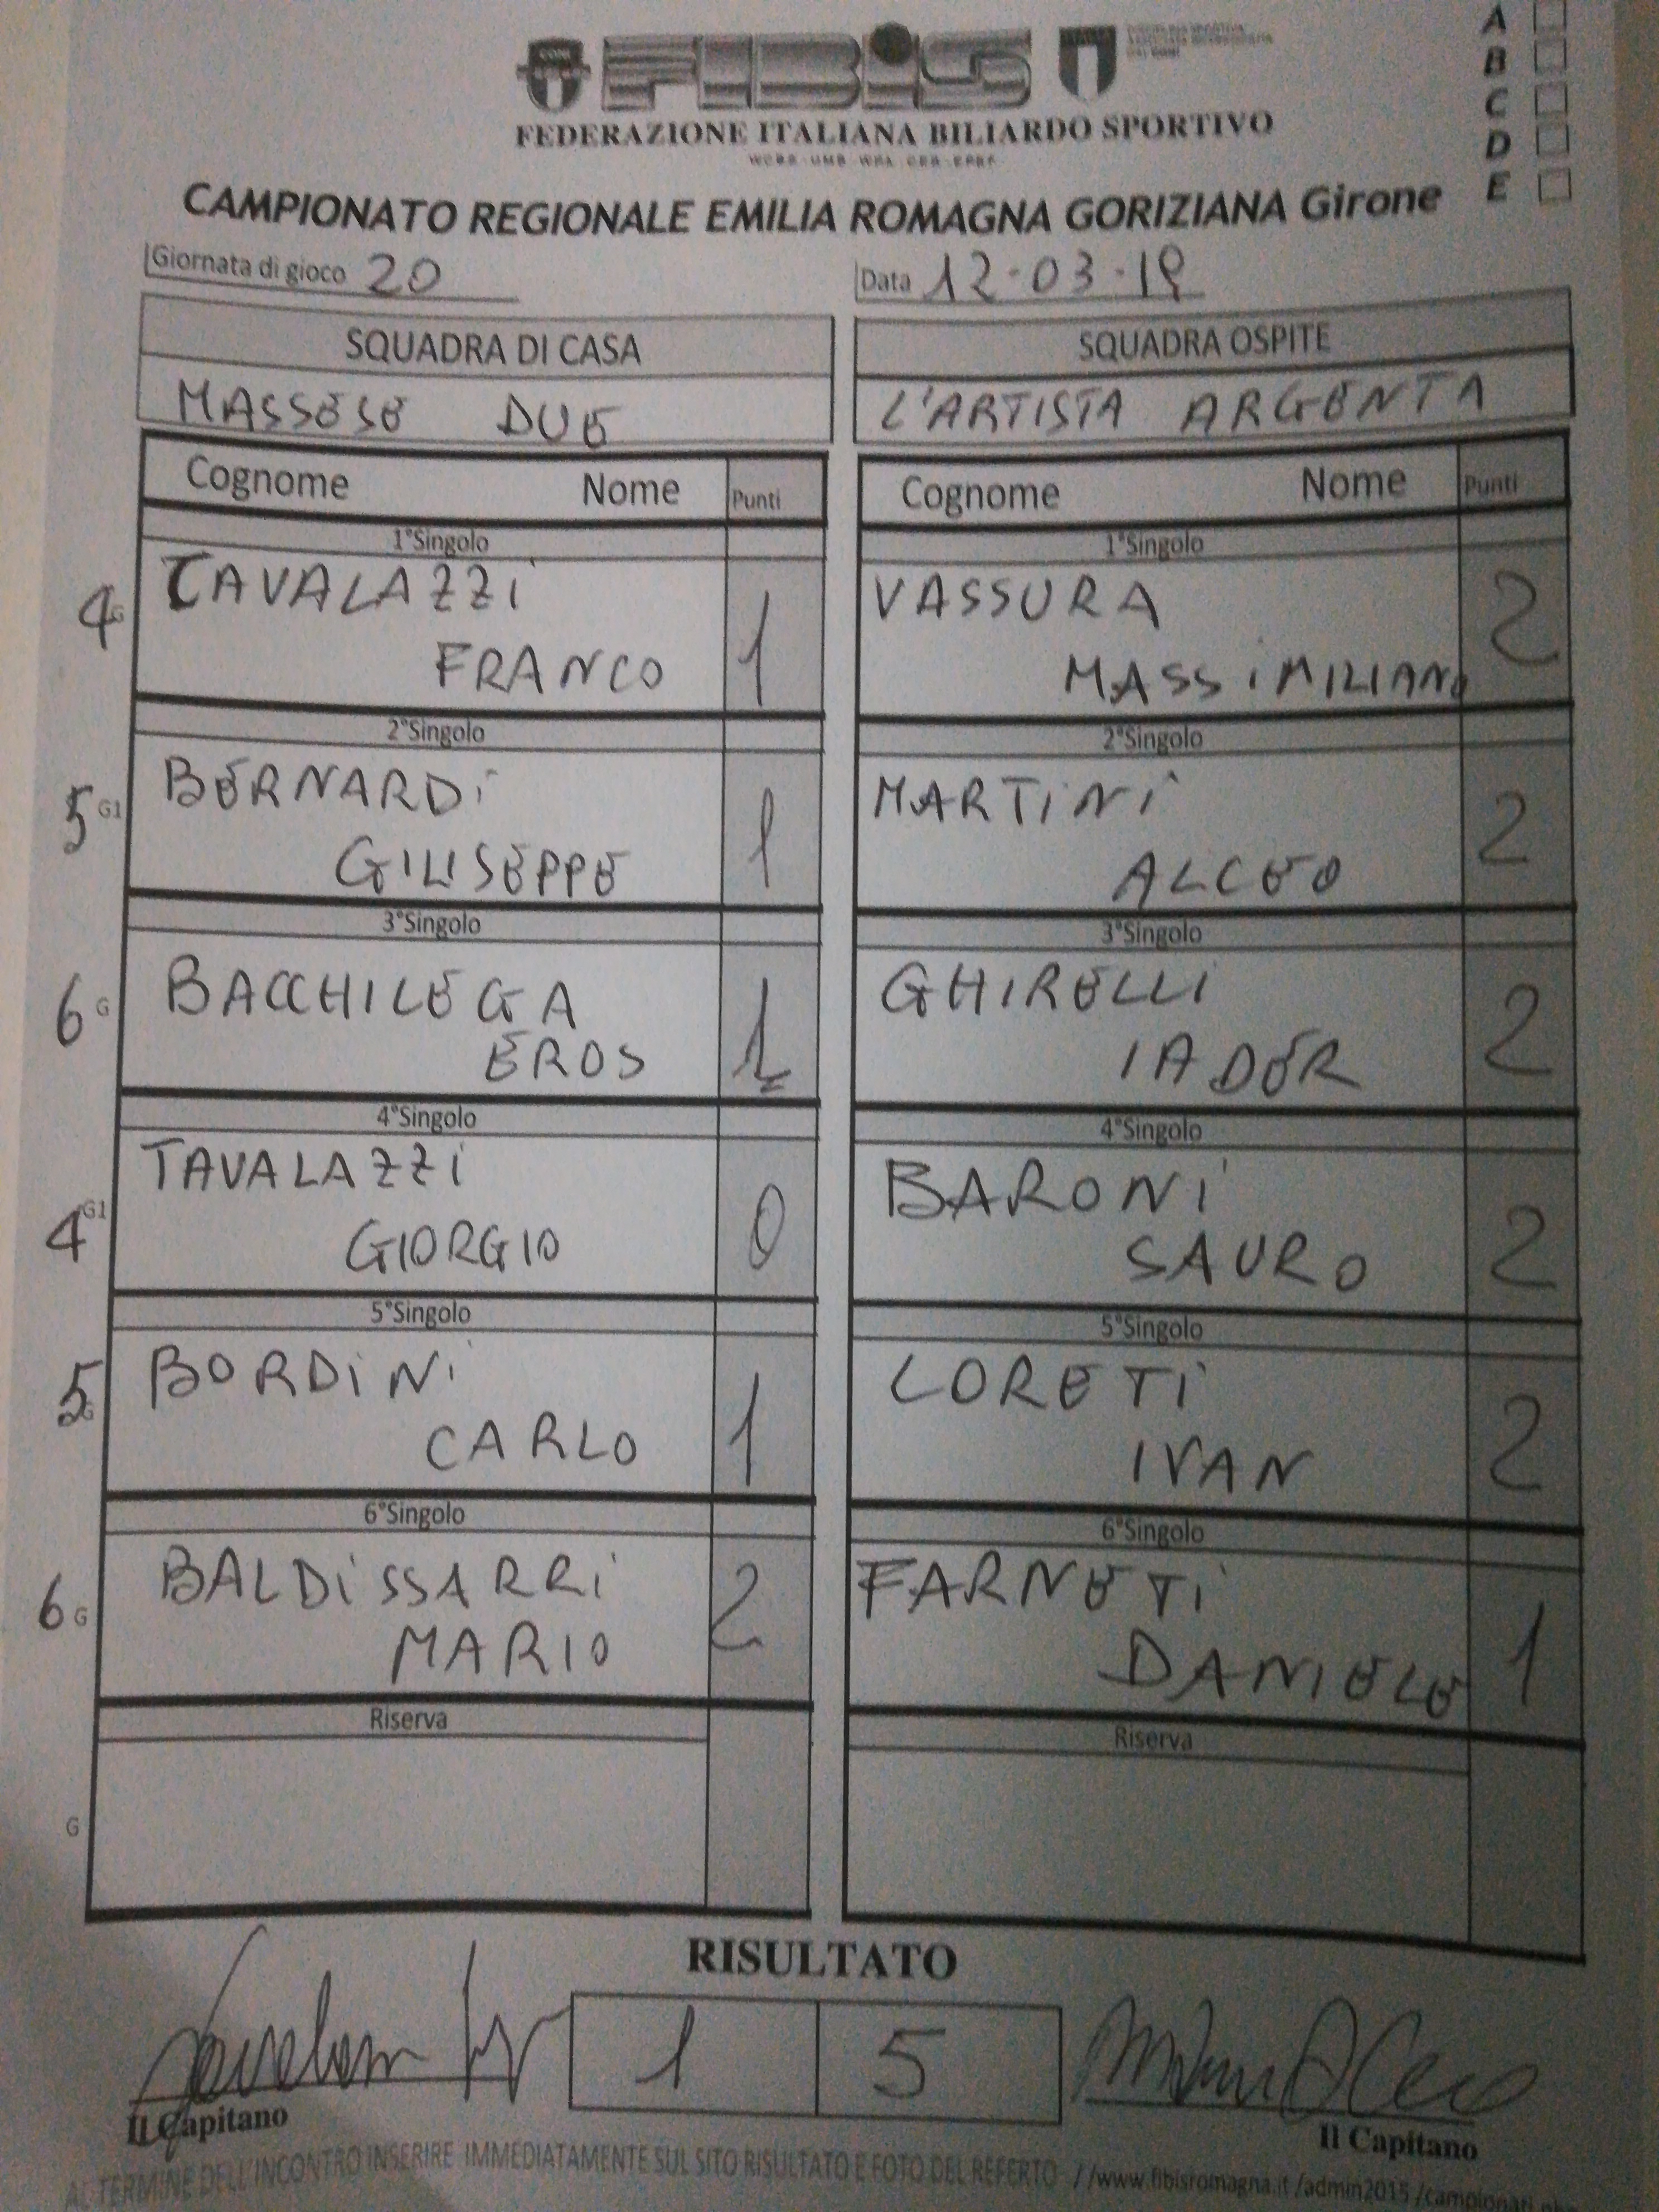 FIBIS
A
B
C
D
E
FEDERAZIONE ITALIANA BILIARDO SPORTIVO
CAMPIONATO REGIONALE EMILIA ROMAGNA GORIZIANA Girone
Giornata di gioco 20 Data 12.03.19
SQUADRA DI CASA SQUADRA OSPITE
MASSESE DUE L'ARTISTA ARGENTA
Cognome Nome Punti Cognome Nome Punti
1°Singolo 1°Singolo
4 G CAVALAZZI 1 VASSURA 2
FRANCO MASSIMILIANO
2°Singolo 2°Singolo
5 G1 BERNARDI 1 MARTINI 2
GIUSEPPE ALCEO
3°Singolo 3°Singolo
6 G BACCHILEGA 1 GHIRELLI 2
EROS IADER
4°Singolo 4°Singolo
4 G1 TAVALAZZI 0 BARONI 2
GIORGIO SAURO
5°Singolo 5°Singolo
5 G BORDINI 1 LORETI 2
CARLO IVAN
6°Singolo 6°Singolo
6 G BALDISSARRI 2 FARNETI 1
MARIO DANIELE
Riserva Riserva
G
RISULTATO
1 5
Il Capitano Il Capitano
AL TERMINE DELL'INCONTRO INSERIRE IMMEDIATAMENTE SUL SITO RISULTATO E FOTO DEL REFERTO //www.fibisromagna.it/admin2015/campionati